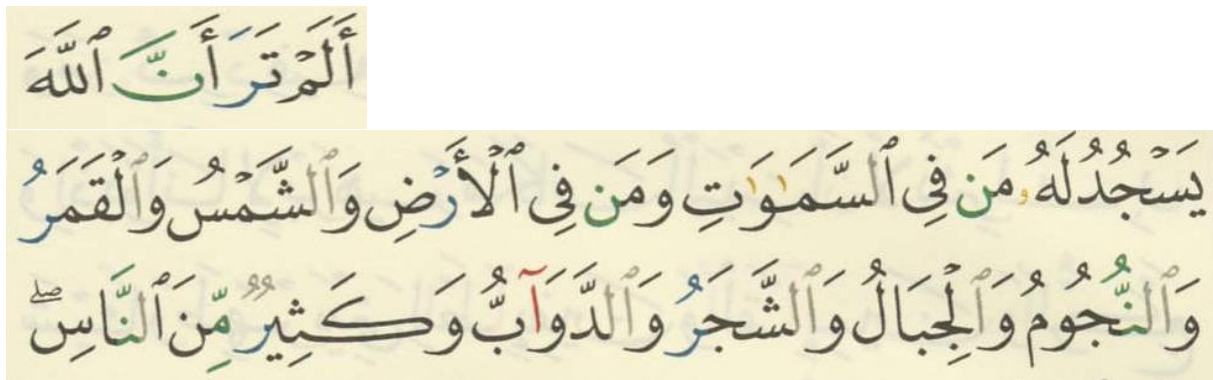 أَلَمْ تَرَ أَنَّ ٱللَّهَ
يَسْجُدُ لَهُۥ مَن فِى ٱلسَّمَـٰوَٰتِ وَمَن فِى ٱلْأَرْضِ وَٱلشَّمْسُ وَٱلْقَمَرُ
وَٱلنُّجُومُ وَٱلْجِبَالُ وَٱلشَّجَرُ وَٱلدَّوَآبُّ وَكَثِيرٌ مِّنَ ٱلنَّاسِ ۖ